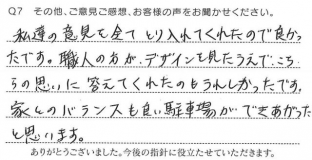 Q7 その他、ご意見ご感想、お客様の声をお聞かせください。
私達の意見を全て とり入れてくれたので良かっ
たです。職人の方が、デザインを見たうえで、こち
らの思いに 答えてくれたのもうれしかったです。
家とのバランスも良い駐車場が できあがった
と思います。
ありがとうございました。今後の指針に役立たせていただきます。